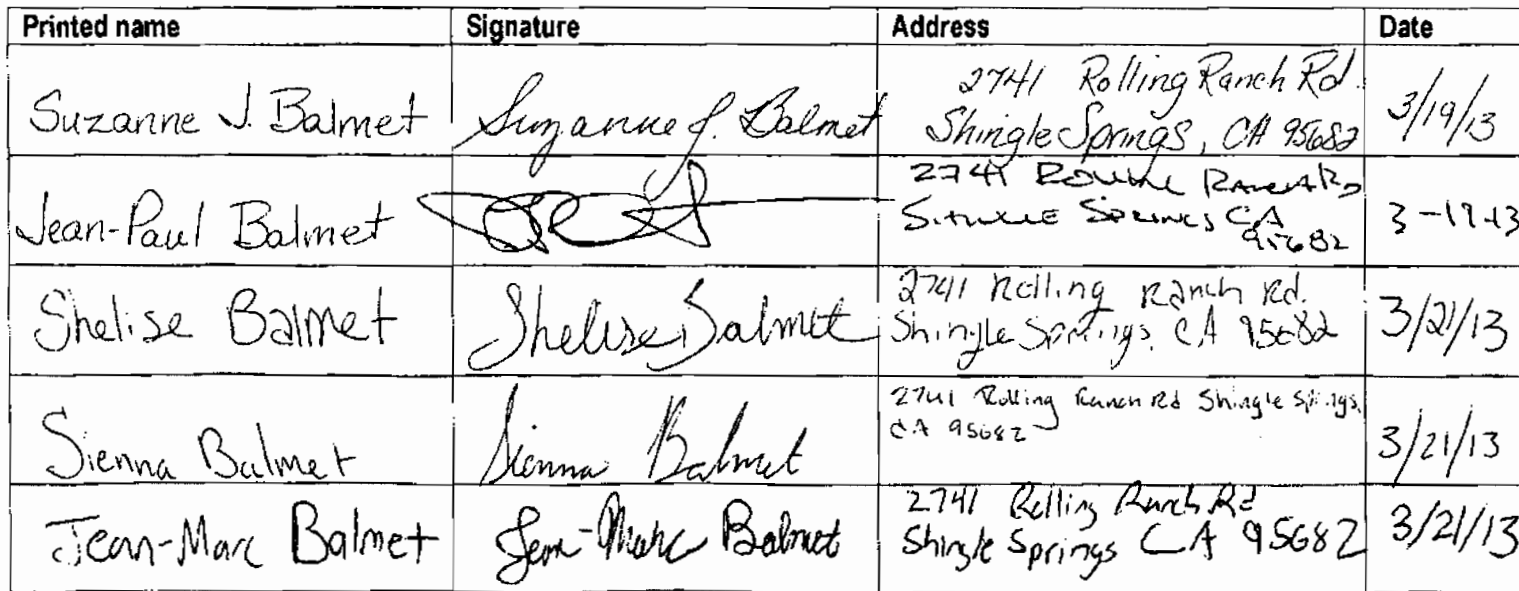 Printed name Signature Address Date
Suzanne J. Balmet Suzanne J. Balmet 2741 Rolling Ranch Rd.
Shingle Springs, CA 95682 3/19/13
Jean-Paul Balmet 2741 Rolling Ranch Rd
Shingle Springs CA
95682 3-19-13
Shelise Balmet Shelise Balmet 2741 Rolling Ranch Rd.
Shingle Springs, CA 95682 3/21/13
Sienna Balmet Sienna Balmet 2741 Rolling Ranch Rd Shingle Springs,
CA 95682 3/21/13
Jean-Marc Balmet Jean-Marc Balmet 2741 Rolling Ranch Rd
Shingle Springs CA 95682 3/21/13